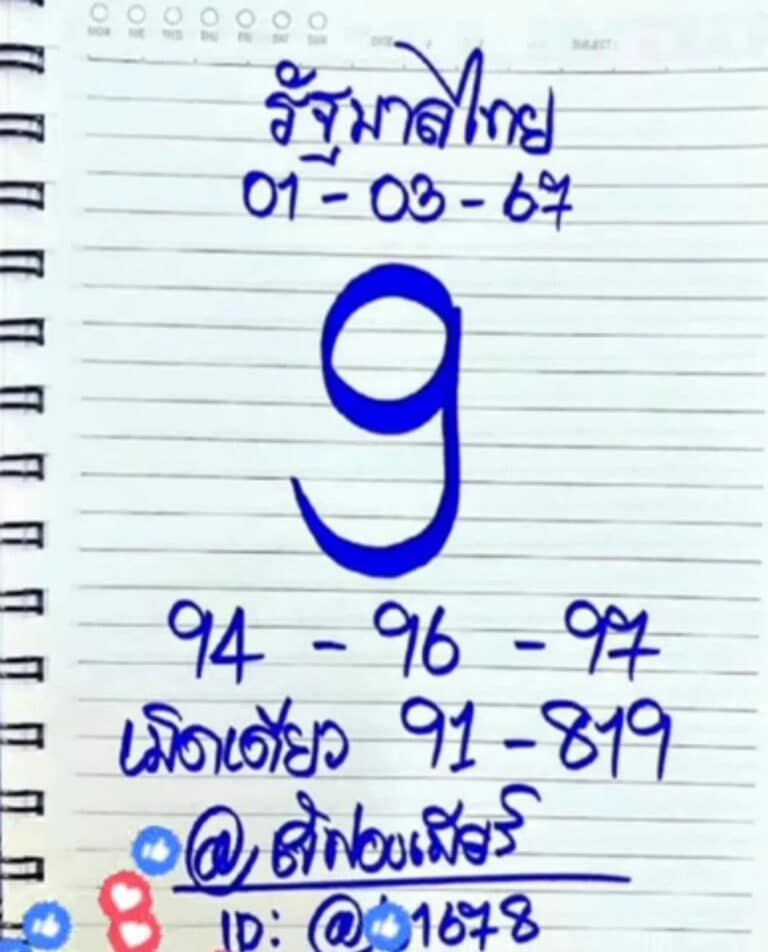 MON TUE WED THU FRI SAT SUN DATE / / SUBJECT:
รัฐบาลไทย
01 - 03 - 67
9
94 - 96 - 97
เม็ดเดียว 91 - 819
ID: @ 1678